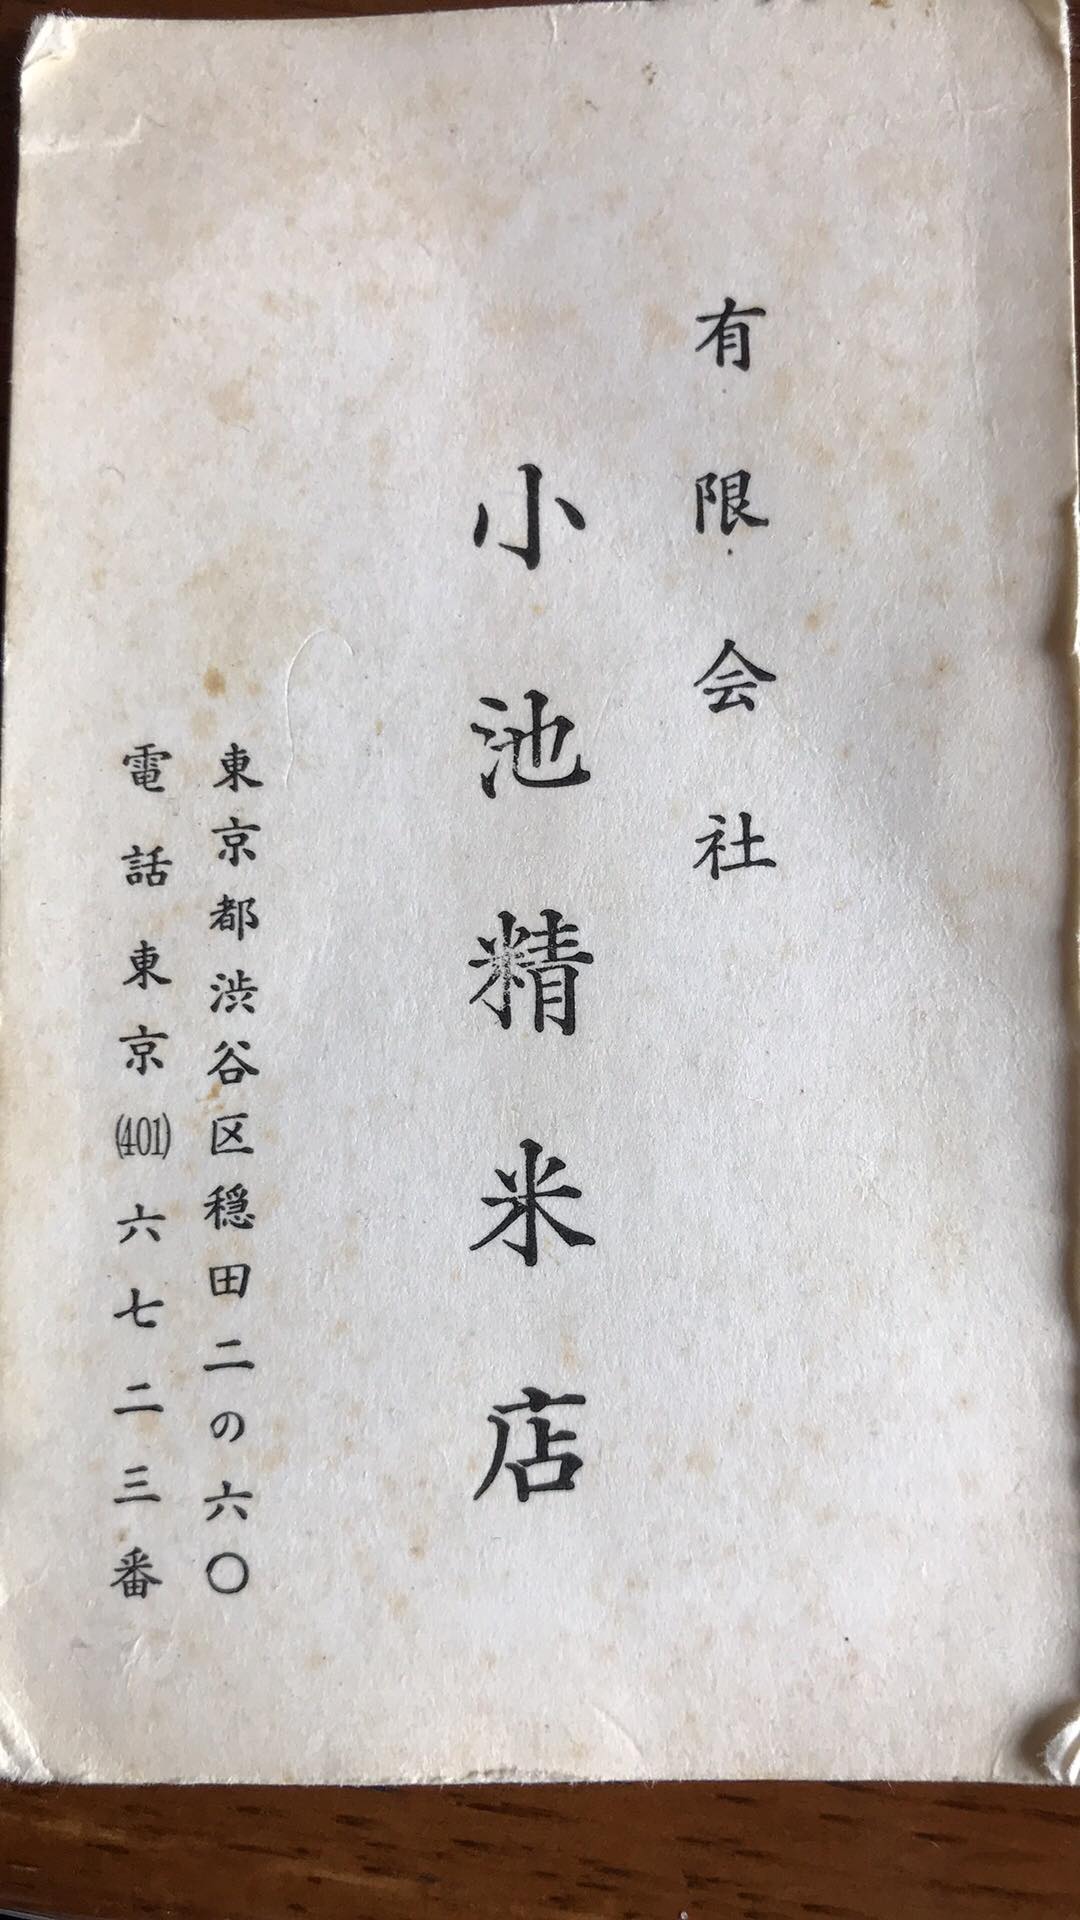 有限会社
小池精米店
東京都渋谷区穏田二の六〇
電話東京(401)六七二三番